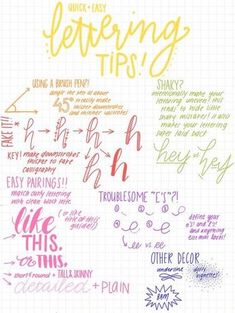 QUICK + EASY
lettering
TIPS!
USING A BRUSH PEN?!
angle the pen at about
45° to easily make
thicker downstrokes
and thinner upstrokes
FAKE IT!!
h → h → h → h
h → h
KEY! make downstrokes
thicker to fake
calligraphy
SHAKY?
intentionally make your
lettering uneven! this
tends to hide little
shaky mistakes! it also
makes your lettering
super laid back
hey or hey
EASY PAIRINGS!!
match curly lettering
with clean block title
like
THIS.
(or like
title of this
guide!!)
or THIS.
→ short/round + TALL & SKINNY
detailed + PLAIN
TROUBLESOME "E'S"?!
→ ee vs ee
define your
OTHER DECOR
underline
BAM!